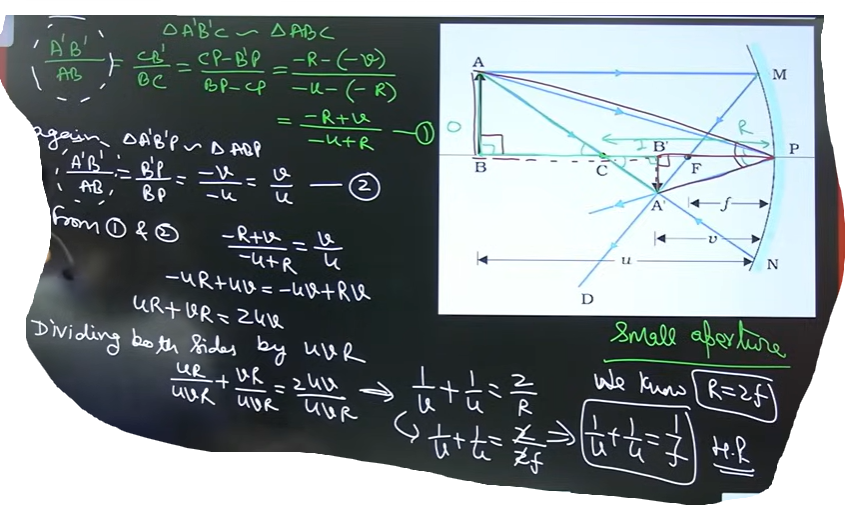 ΔA'B'C ~ ΔABC
A'B'/AB = CB'/BC = CP-B'P/BP-CP = -R-(-v)/-u-(-R)
= -R+v/-u+R —①
again, ΔA'B'P ~ ΔABP
A'B'/AB = B'P/BP = -v/-u = v/u —②
From ① & ②
-R+v/-u+R = v/u
-uR+uv = -uv+Rv
uR+vR = 2uv
Dividing both sides by uvR
uR/uvR + vR/uvR = 2uv/uvR → 1/v + 1/u = 2/R
↳ 1/v + 1/u = 2/2f ⇒ 1/v + 1/u = 1/f H.P
Small aperture
We know R=2f
A
M
O
I
R
B
C
B'
F
P
A'
f
v
u
N
D